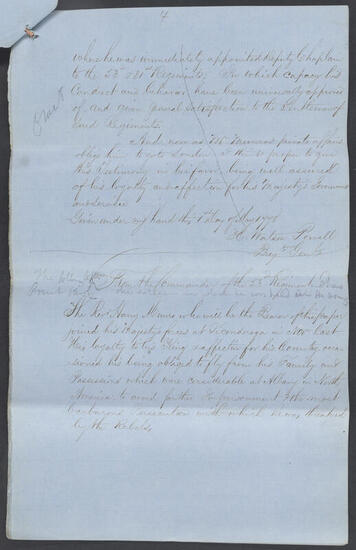 4
where he was immediately appointed Deputy Chaplain
to the 53d & 31st Regiments; In which capacity his
Conduct and Behavior have been universally approved
of and given general satisfaction to the Gentlemen of
said Regiments.
Omit
And now as Mr Munros private affairs
oblige him to go to London
this Testimony in his favor, being well assured
of his loyalty and affection for his Majesty's Person
and Service
Given under my hand this 1st day of May 1778
H. Watson Powell
Brigr Genl
From the Commander of the 53d Regiment
The Rev Harry Munro who will be the Bearer of this paper
joined his Majesty's forces at Ticonderoga in Nov last
His loyalty to his King & affection for his Country occa-
sioned his being obliged to fly from his Family and
Possessions which were considerable at Albany in North
America to avoid further Imprisonment & the most
barbarous Persecution with which he was threatened
by the Rebels.